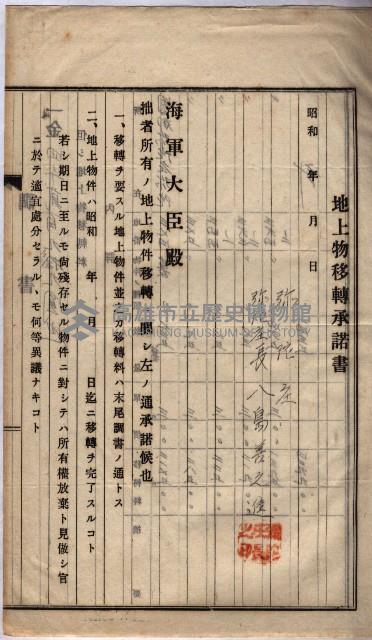 地上物移轉承諾書
昭和 年 月 日
弥陀庄
弥陀庄長 八島善之進
海軍大臣殿
拙者所有ノ地上物件移轉ニ關シ左ノ通承諾候也
一、移轉ヲ要スル地上物件並之カ移轉料ハ末尾調書ノ通トス
二、地上物件ハ昭和 年 月 日迄ニ移轉ヲ完了スルコト
若シ期日ニ至ルモ尙殘存セル物件ニ對シテハ所有權放棄ト見做シ官
ニ於テ適宜處分セラルヽモ何等異議ナキコト
高雄市立歷史博物館
KAOHSIUNG MUSEUM OF HISTORY